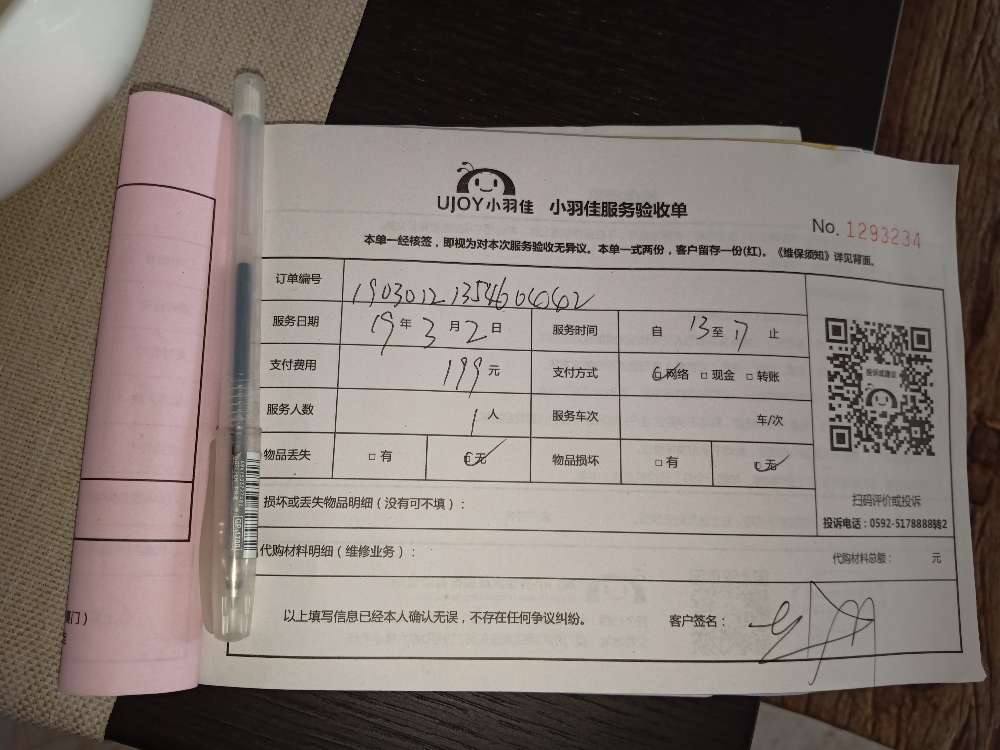 UJOY小羽佳 小羽佳服务验收单
No. 1293234
本单一经核签，即视为对本次服务验收无异议。本单一式两份，客户留存一份(红)。《维保须知》详见背面。
订单编号
服务日期 19年3月2日 服务时间 自13至17止
支付费用 199元 支付方式 □网络 □现金 □转账
服务人数 1人 服务车次 车/次
物品丢失 □有 □无 物品损坏 □有 □无
损坏或丢失物品明细（没有可不填）：
代购材料明细（维修业务）： 代购材料总额： 元
以上填写信息已经本人确认无误，不存在任何争议纠纷。 客户签名：
投诉或建议
扫码评价或投诉
投诉电话：0592-5178888转2